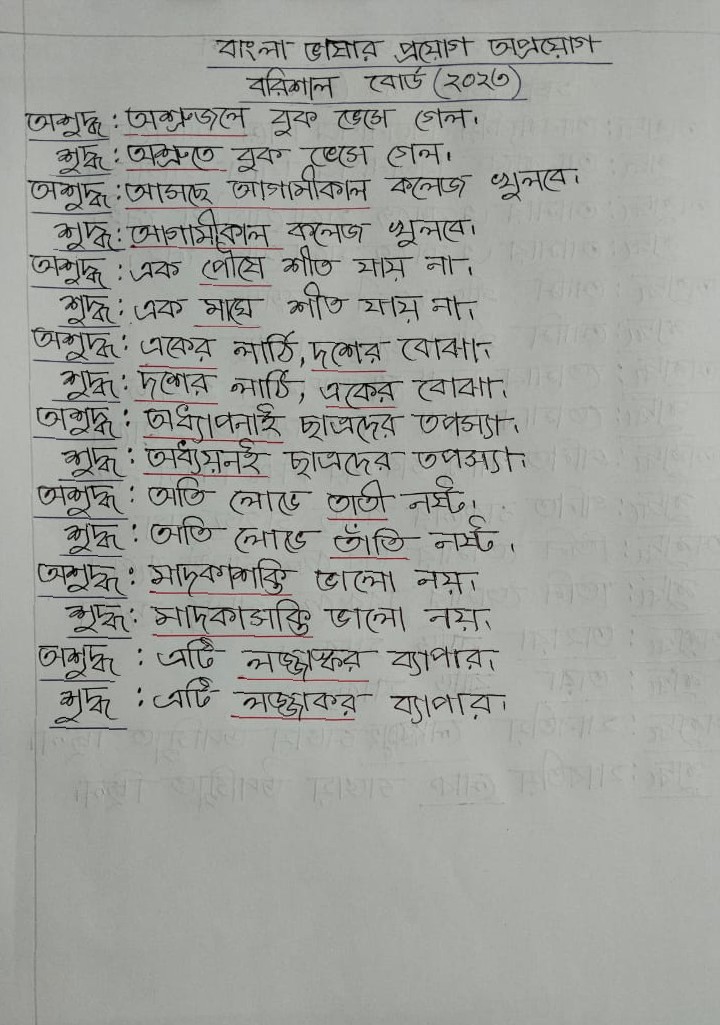 বাংলা ভাষার প্রয়োগ অপপ্রয়োগ
বরিশাল বোর্ড (২০২৩)
অশুদ্ধ : অশ্রুজলে বুক ভেসে গেল।
শুদ্ধ : অশ্রুতে বুক ভেসে গেল।
অশুদ্ধ : আসছে আগামীকাল কলেজ খুলবে।
শুদ্ধ : আগামীকাল কলেজ খুলবে।
অশুদ্ধ : এক পৌষে শীত যায় না।
শুদ্ধ : এক মাঘে শীত যায় না।
অশুদ্ধ : একের লাঠি, দশের বোঝা।
শুদ্ধ : দশের লাঠি, একের বোঝা।
অশুদ্ধ : অধ্যাপনাই ছাত্রদের তপস্যা।
শুদ্ধ : অধ্যয়নই ছাত্রদের তপস্যা।
অশুদ্ধ : অতি লোভে তাতী নষ্ট।
শুদ্ধ : অতি লোভে তাঁতি নষ্ট।
অশুদ্ধ : মাদকাশক্তি ভালো নয়।
শুদ্ধ : মাদকাসক্তি ভালো নয়।
অশুদ্ধ : এটি লজ্জাস্কর ব্যাপার।
শুদ্ধ : এটি লজ্জাকর ব্যাপার।